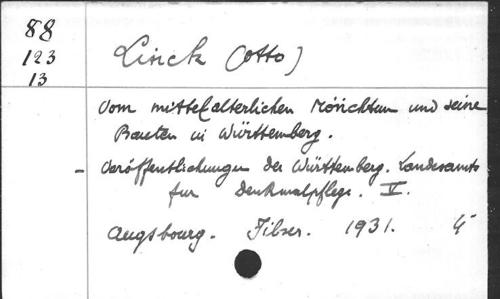 88
123
13
Linck (Otto)
Vom mittelalterlichen Mönchtum und seine
Bauten in Württemberg.
- Veröffentlichungen des Württemberg. Landesamts
fur Denkmalpflege. V.
Augsbourg. Filser. 1931. 4°